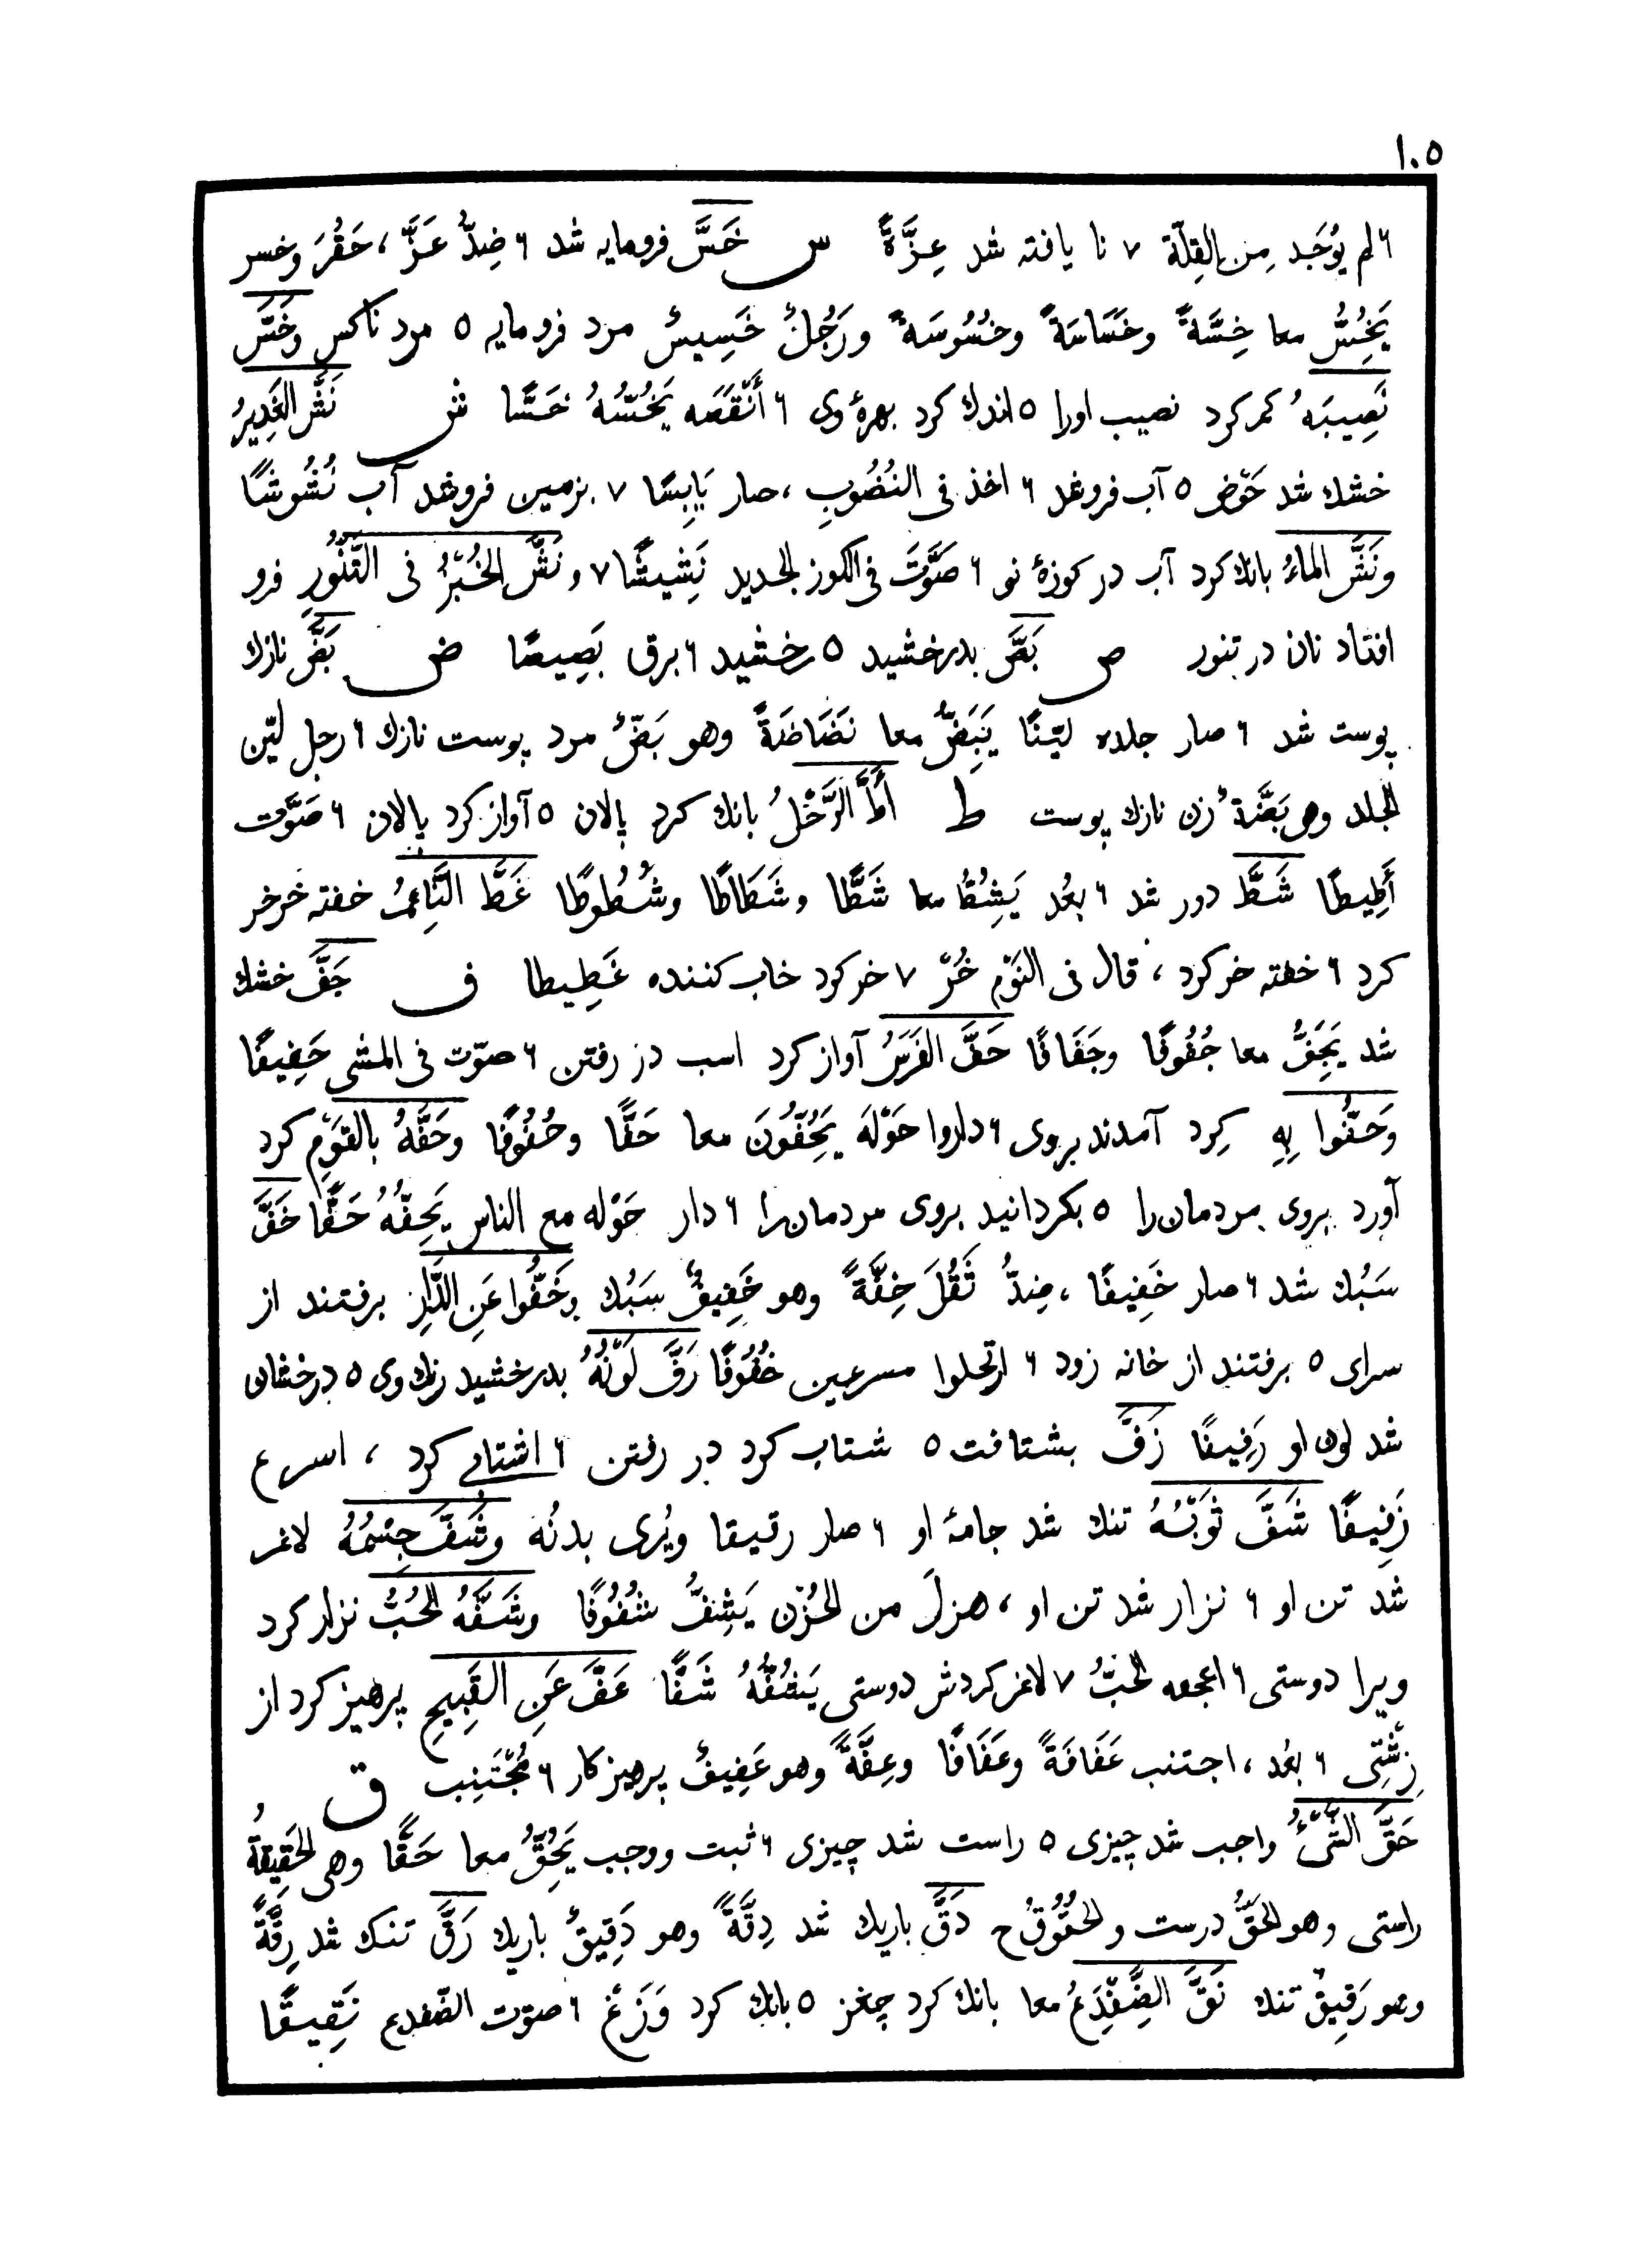 ١٠٥
٦ لم يُوْجَد مِن القِلّة ٧ نا يافته شد عِزَّةً س خَسَّ فرومايه شد ٦ ضِدُّ عَزَّ ، حَقُرَ وخسر
يَخُِسُّ معا خِسَّةً وخَسَاسَةً وخُسُوسَةً ورَجُلٌ خَسِيسٌ مرد فرومايه ٥ مرد ناكس وخَسَّ
نَصِيبَهُ كم كرد نصيب اورا ٥ اندك كرد بهرهٔ وى ٦ أَنْقَصَه يَخُسُّهُ خَسًّا ش نَشَّ الغَدِيرُ
خشك شد حَوْض ٥ آب فروشد ٦ اخذ فى النُضُوبِ ، صار يَابِسًا ٧ بزمين فروشد آب نُشُوشًا
ونَشَّ الماءُ بانك كرد آب در كوزهٔ نو ٦ صَوَّتَ فى الكوز الجديد نَشِيشًا ٧ ونَشَّ الخُبْزُ فى التَّنُّورِ فرو
افتاد نان در تنور ص بَصَّ بدرخشيد ٥ رخشيد ٦ برق بَصِيصًا ض بَضَّ نازك
پوست شد ٦ صار جلده ليّنًا يَبَِضُّ معا بَضَاضَةً وهو بَضٌّ مرد پوست نازك ٦ رجل ليّن
الجلد وهى بَضَّةٌ زن نازك پوست ط أَطَّ الرَّحْلُ بانك كرد پالان ٥ آواز كرد پالان ٦ صَوَّت
أَطِيطًا شَطَّ دور شد ٦ بعُد يَشُِطُّ معا شَطًّا وشَطَاطًا وشُطُوطًا غَطَّ النَّاعِمُ خفته خرخر
كرد ٦ خفته خر كرد ، قال فى النَوْمِ خُرّ ٧ خر كرد خاب كننده غَطِيطا ف جَفَّ خشك
شد يَجَِفُّ معا جُفُوفًا وجَفَافًا حَفَّ الفَرَسُ آواز كرد اسب در رفتن ٦ صوّت فى المشى حَفِيفًا
وَحَفُّوا بِهِ كِرد آمدند بروى ٦ داروا حَوْلَهُ يَحُِفُّونَ معا حَفًّا وحُفُوفًا وحَفَّهُ بالقَوْمِ كرد
آورد بروى مردمان را ٥ بكردانيد بروى مردمان را ٦ دار حَوْله مع الناس يَحُِفُّهُ حَفًّا خَفَّ
سَبُك شد ٦ صار خَفِيفًا ، ضِدُّ ثَقُلَ خِفَّةً وهو خَفِيفٌ سَبُك وخَفُّوا عَنِ الدَّارِ برفتند از
سراى ٥ برفتند از خانه زود ٦ ارتحلوا مسرعين خُفُوفًا رَفَّ لَوْنُهُ بدرخشيد رنك وى ٥ درخشان
شد لون او رَفِيفًا زَفَّ بشتافت ٥ شتاب كرد در رفتن ٦ اشتاب كرد ، اسرع
زَفِيفًا شَفَّ ثَوْبُهُ تنك شد جامهٔ او ٦ صار رقيقا ويُرى بدنُه وشَفَّ جِسْمُهُ لاغر
شد تن او ٦ نزار شد تن او ، هزلَ من الحُزْن يَشِفُّ شُفُوفًا وشَفَّهُ الحُبُّ نزار كرد
ويرا دوستى ٦ اعجفه الحُبُّ ٧ لاغر كردش دوستى يَشُفُّهُ شَفًّا عَفَّ عَنِ القَبِيحِ پرهيز كرد از
زِشْتِى ٦ بعُد ، اجتنب عَفَافَةً وعَفَافًا وعِفَّةً وهو عَفِيفٌ پرهيز كار ٦ مُجْتَنِب ق
حَقَّ الشَّىْءُ واجب شد چيزى ٥ راست شد چيزى ٦ ثبت ووجب يَحُِقُّ معا حَقًّا وهى الحَقِيقَةُ
راستى وهو الحَقُّ درست والحُقُوقُ ح دَقَّ باريك شد دِقَّةً وهو دَقِيقٌ باريك رَقَّ تنك شد رِقَّةً
وهو رَقِيقٌ تنك نَقَّ الضِّفْدَِعُ معا بانك كرد چغز ٥ بانك كرد وَزَغ ٦ صوّت الضّفدع نَقِيقًا